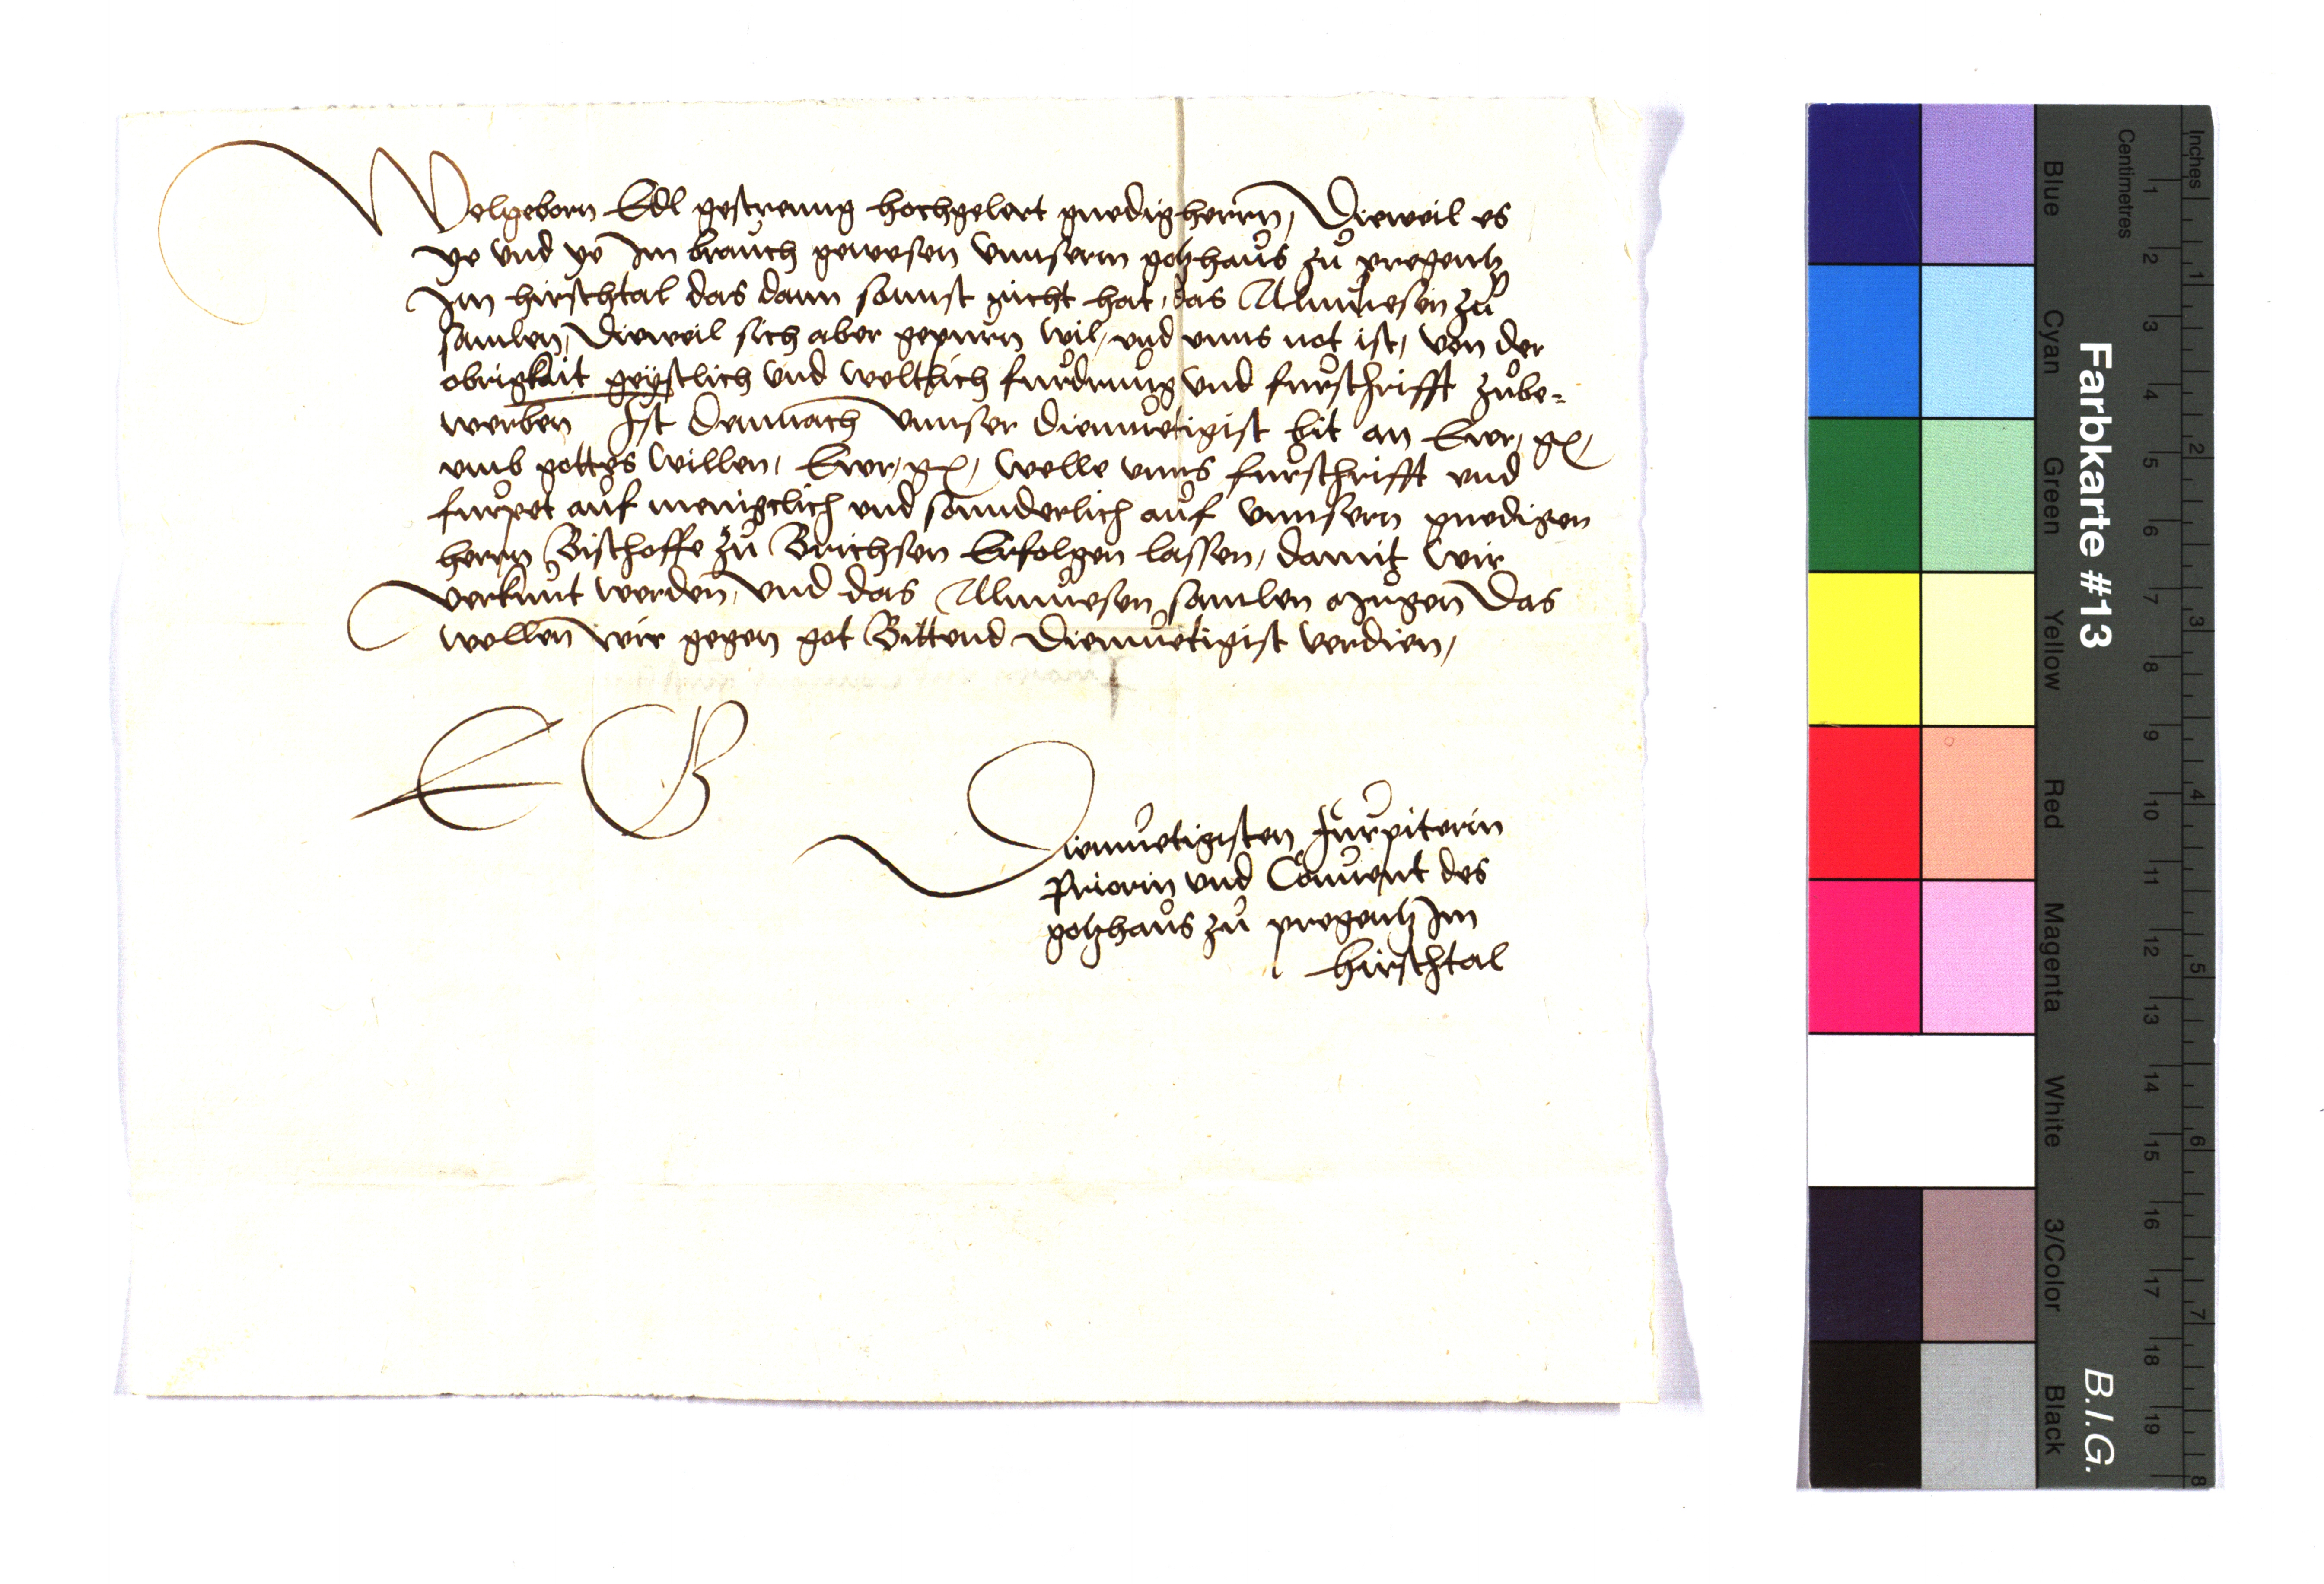 Wolgeborn Edl gestreng hochgelert gnedig herrn, Dieweil es
ye und ye Im brauch gewesen unnserm gotzhaus zu pregentz
Im hirschtal das dann sonnst nicht hat, das Almuesen zu
samlen, Dieweil sich aber gepurn wil, und unns not ist, von der
obrigkait geystlich und weltlich furdrung und furschrifft zube-
werben Ist demnach unnser diemuetigist bit an Ewr, g,
umb gottes willen, Ewr, g, welle unns furschrifft und
furpet auf menigclich und sonnderlich auf unnsern gnedigen
herrn Bischoffe zu Brichsen Erfolgen lassen, damit wir
verkunt werden, und das Almuesen samlen mugen Das
wollen wir gegen got Bittend diemuetigist verdien,
E G
Diemuetigisten furpiterin
Priorin und Convent des
gotzhaus zu pregentz Im
hirschtal
Farbkarte #13
B.I.G.
Blue Cyan Green Yellow Red Magenta White 3/Color Black
Centimetres 1 2 3 4 5 6 7 8 9 10 11 12 13 14 15 16 17 18 19
Inches 1 2 3 4 5 6 7 8